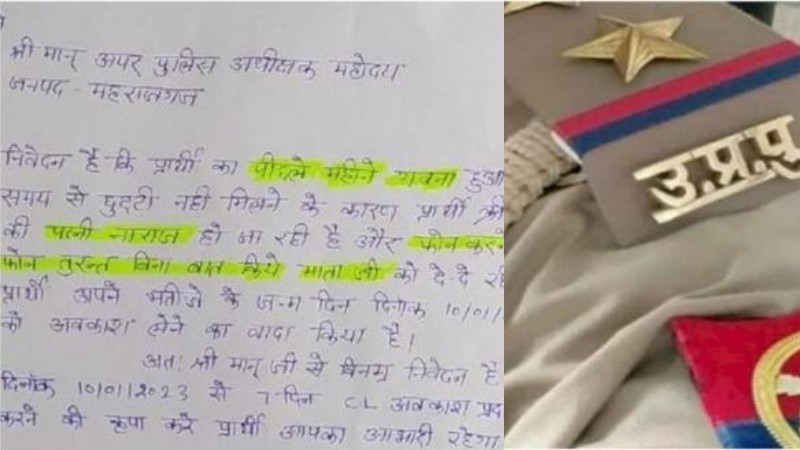 श्री मान् अपर पुलिस अधीक्षक महोदय
जनपद - महराजगंज
निवेदन है कि प्रार्थी का पीछले महीने गवना हुआ
समय से छुट्टी नहीं मिलने के कारण प्रार्थी श्री
की पत्नी नाराज हो जा रही है और फोन करने
फोन तुरन्त बिना बात किये माता जी को दे-दे रही
प्रार्थी अपने भतीजे के जन्म दिन दिनांक 10/01/
को अवकाश लेने का वादा किया है।
अतः श्री मान् जी से विनम्र निवेदन है
दिनांक 10/01/2023 से 7 दिन CL अवकाश प्रद
करने की कृपा करें प्रार्थी आपका आभारी रहेगा
उ.प्र.पु